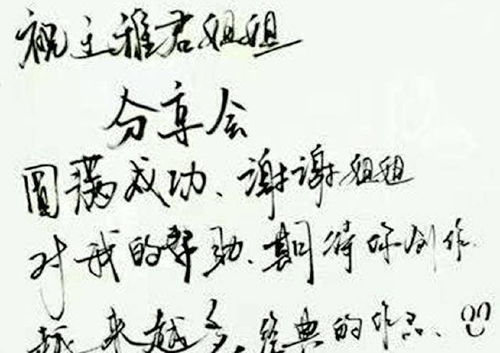 祝王雅君姐姐
分享会
圆满成功、谢谢姐姐
对我的帮助、期待你创作
越来越多、经典的作品、